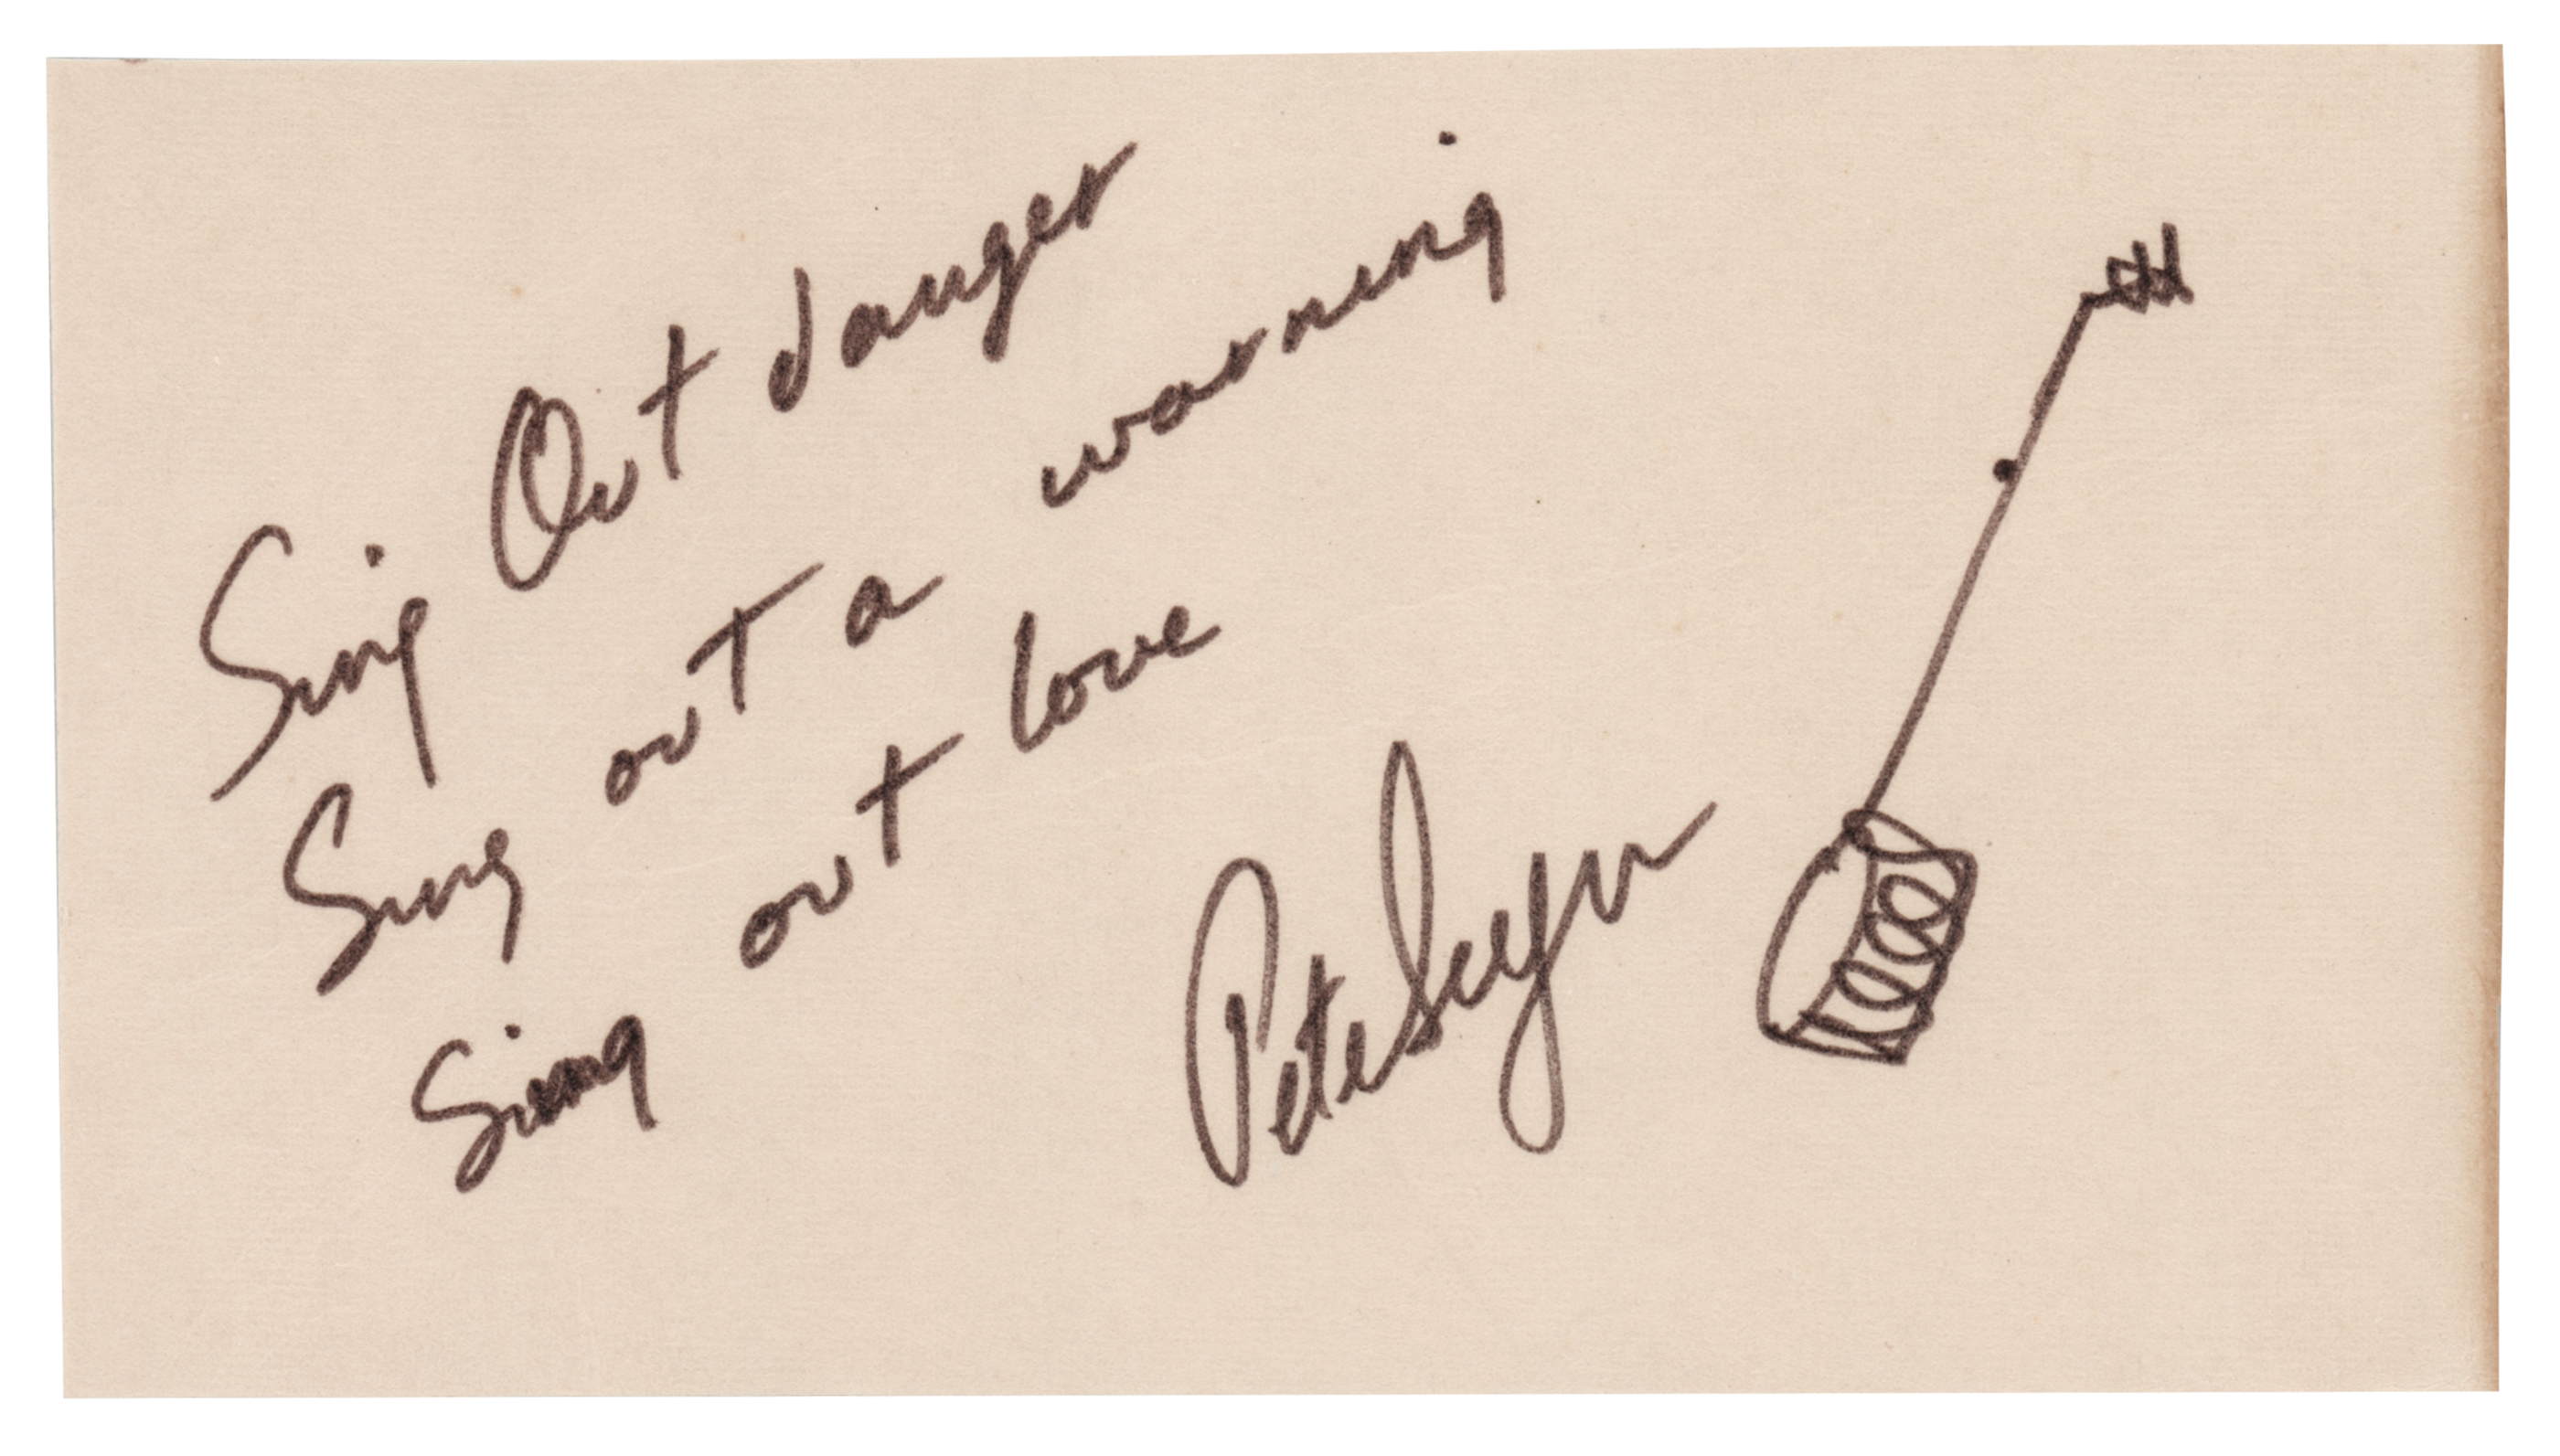 Sing Out danger
Sing out a warning
Sing out love
Pete Seeger